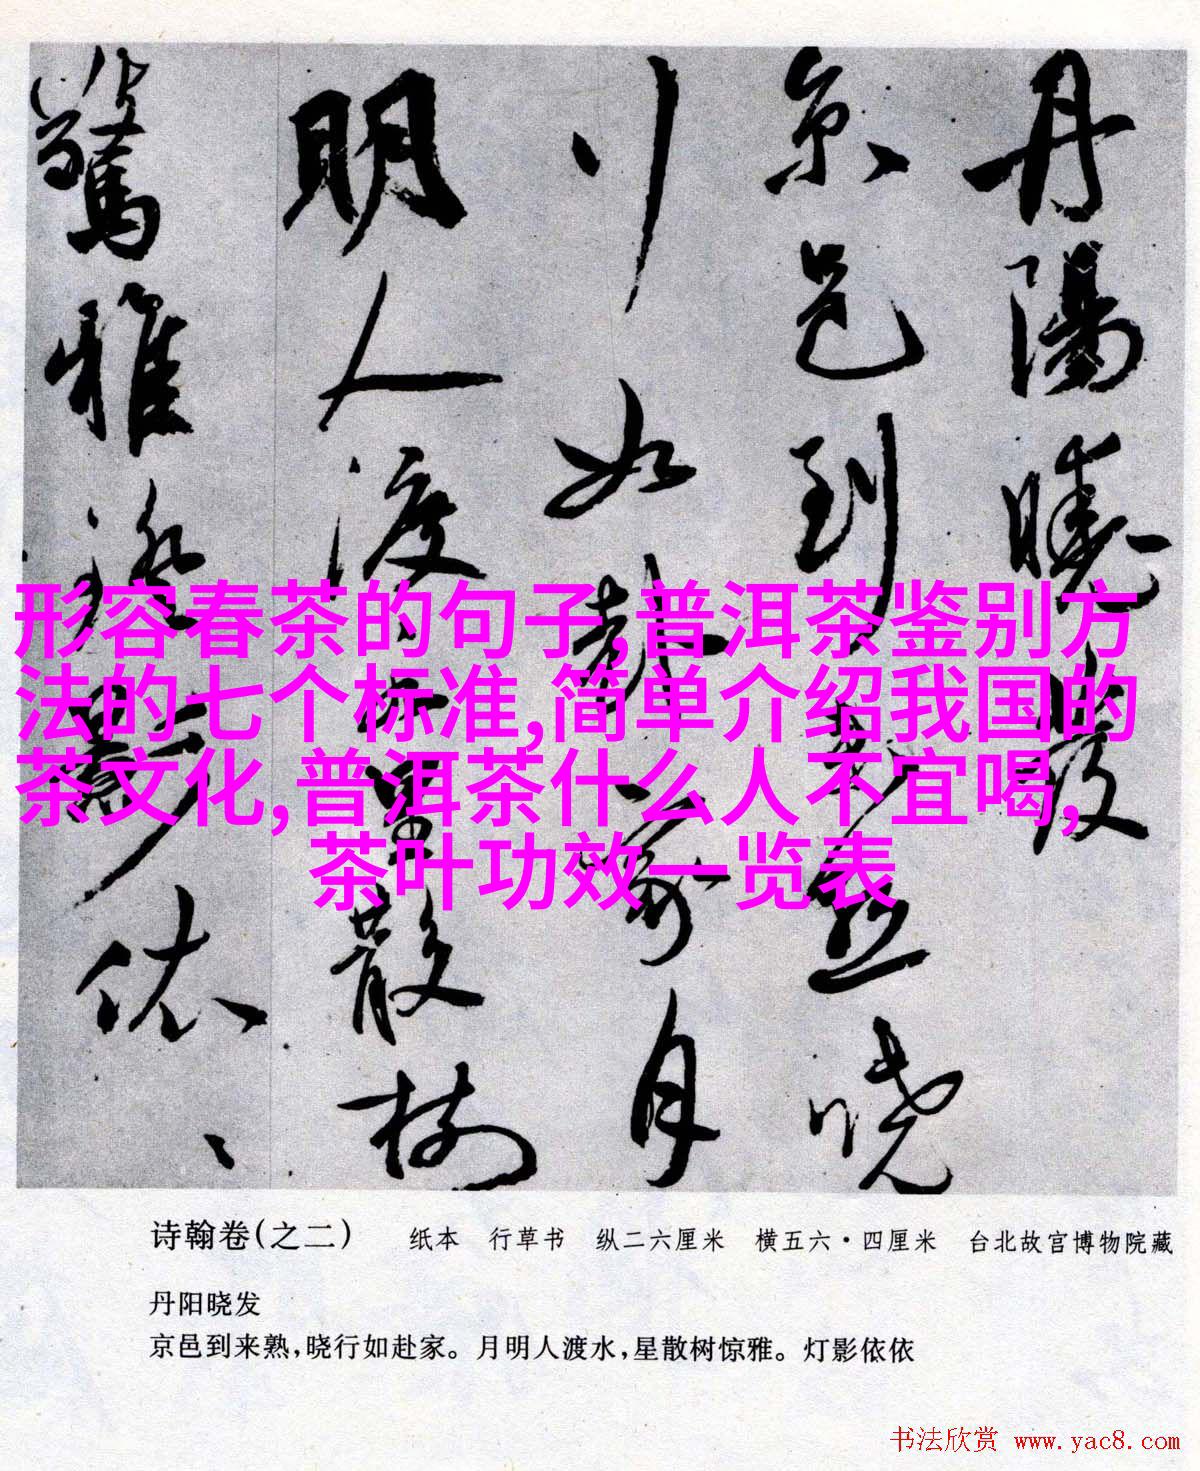 丹陽曉發
京邑到來熟曉
行如赴家月
明人渡水星散樹
驚雅燈影依依
形容春茶的句子,普洱茶鉴别方
法的七个标准,简单介绍我国的
茶文化,普洱茶什么人不宜喝,
茶叶功效一览表
诗翰卷(之二) 纸本 行草书 纵二六厘米 横五六·四厘米 台北故宫博物院藏
丹阳晓发
京邑到来熟,晓行如赴家。月明人渡水,星散树惊雅。灯影依依
书法欣赏 www.yac8.com